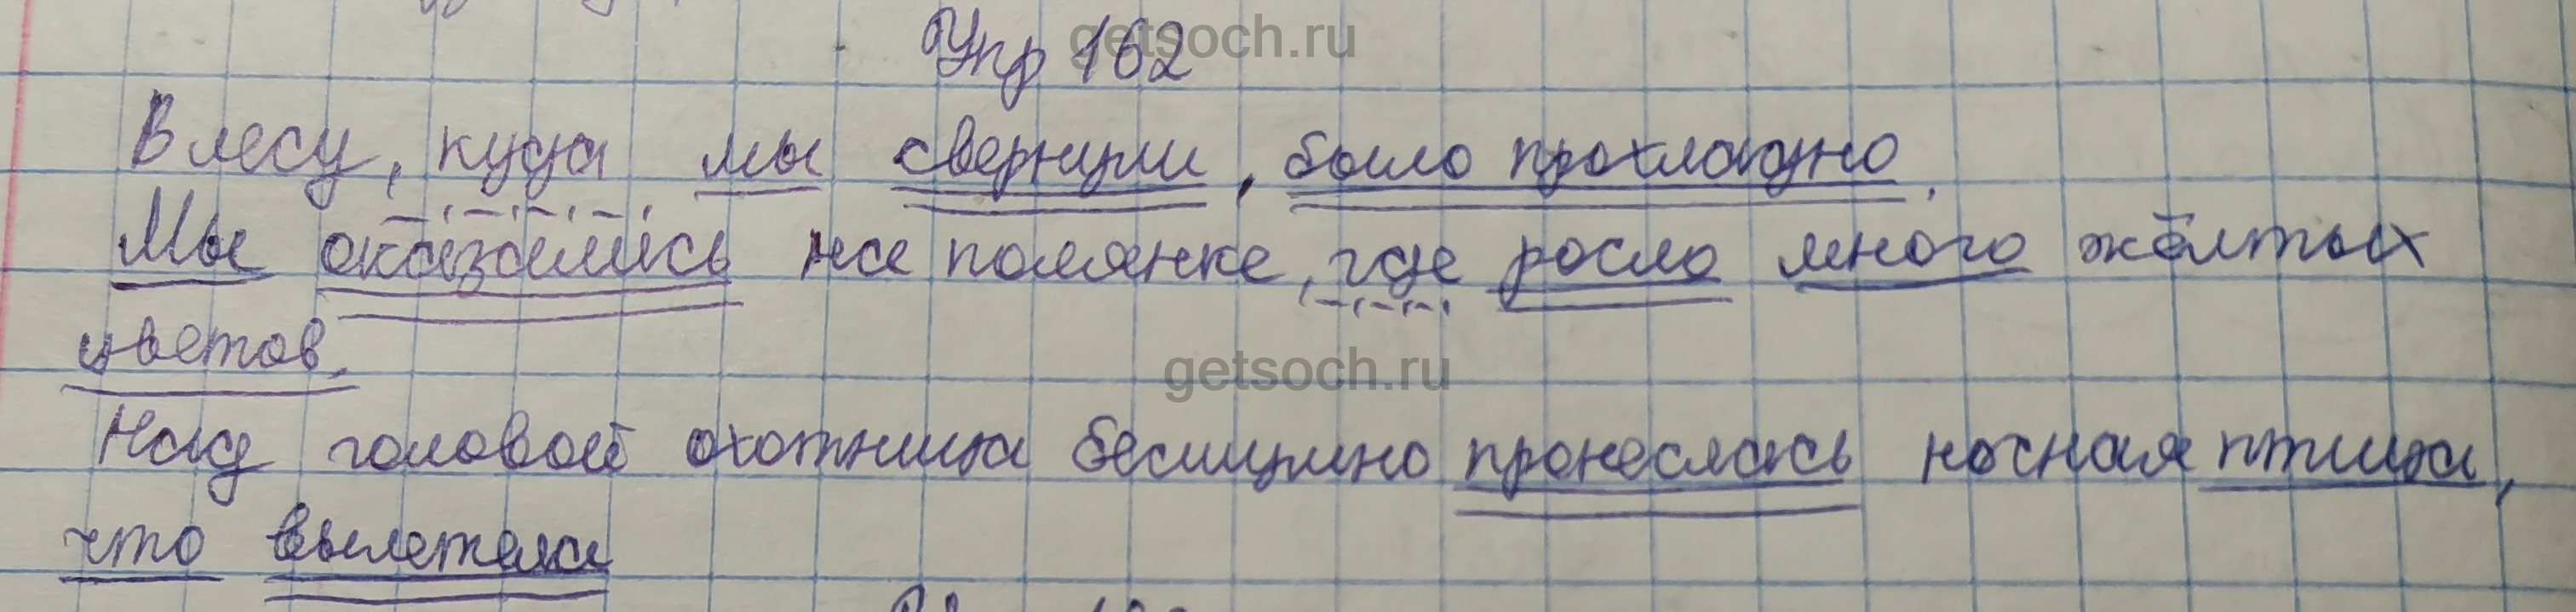 Упр 162
getsoch.ru
В лесу, куда мы свернули, было прохладно.
Мы оказались на полянке, где росло много жёлтых
цветов.
getsoch.ru
Над головой охотника бесшумно пронеслась ночная птица,
что вылетела